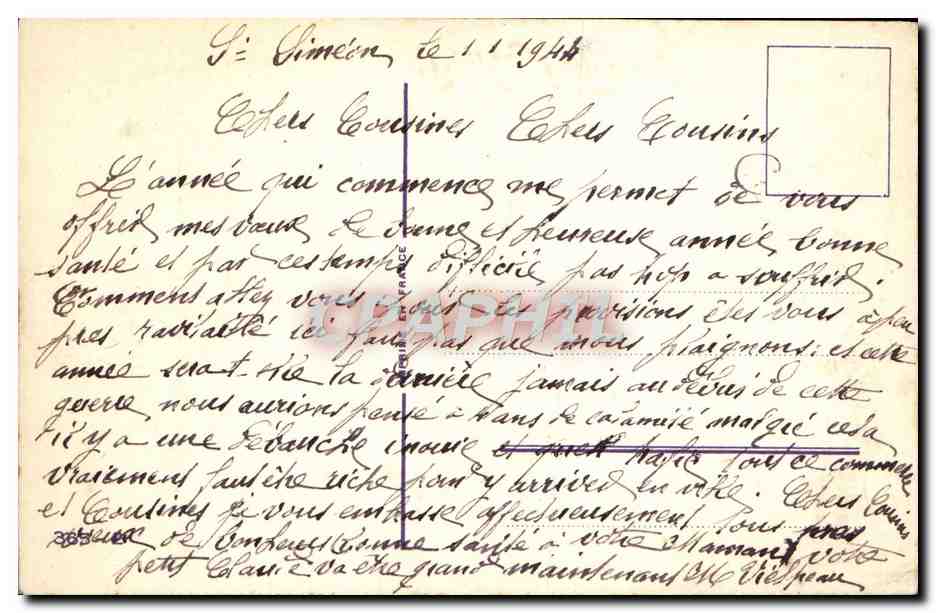 St Siméon le 1 1 1944
Chers Cousines Chers Cousins
L'année qui commence me permet de vous
offrir mes vœux de bonne et heureuse année, bonne
santé et par ces temps difficile pas trop a souffrir.
Comment allez vous vous les provisions êtes vous à peu
pres ravitaillé ici faus pas que nous plaignons; et cette
année serat-elle la dernière jamais au début de cette
guerre nous aurions pensé à ans de calamité malgré cela
il y a une débauche inouie et trafic tous ce commerce
vraiment faut être riche pour y arriver en ville. Chers Cousins
et Cousines je vous embrasse affectueusement tous
de bonheur bonne santé à votre Maman votre
petit Claude va être grand maintenant M
CPAPHIL
FRANCE